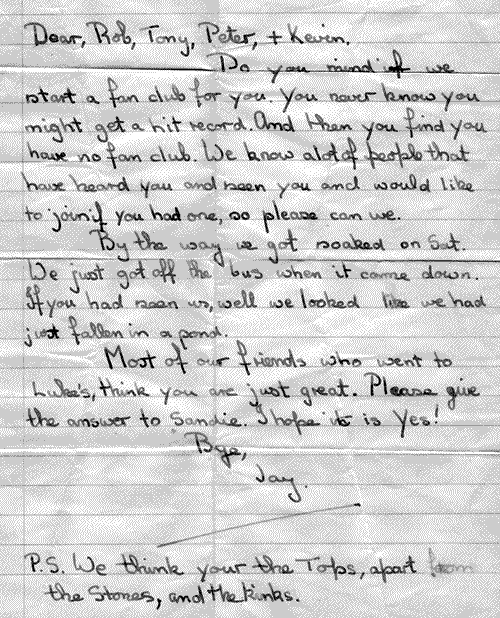 Dear, Rob, Tony, Peter, + Kevin.
Do you mind if we
start a fan club for you. You never know you
might get a hit record. And then you find you
have no fan club. We know alot of people that
have heard you and seen you and would like
to join if you had one, so please can we.
By the way we got soaked on Sat.
We just got off the bus when it came down.
If you had seen us, well we looked like we had
just fallen in a pond.
Most of our friends who went to
Luke's, think you are just great. Please give
the answer to Sandie. I hope its is Yes!
Bye,
Jay.
P.S. We think your the Tops, apart from
the Stones, and the kinks.